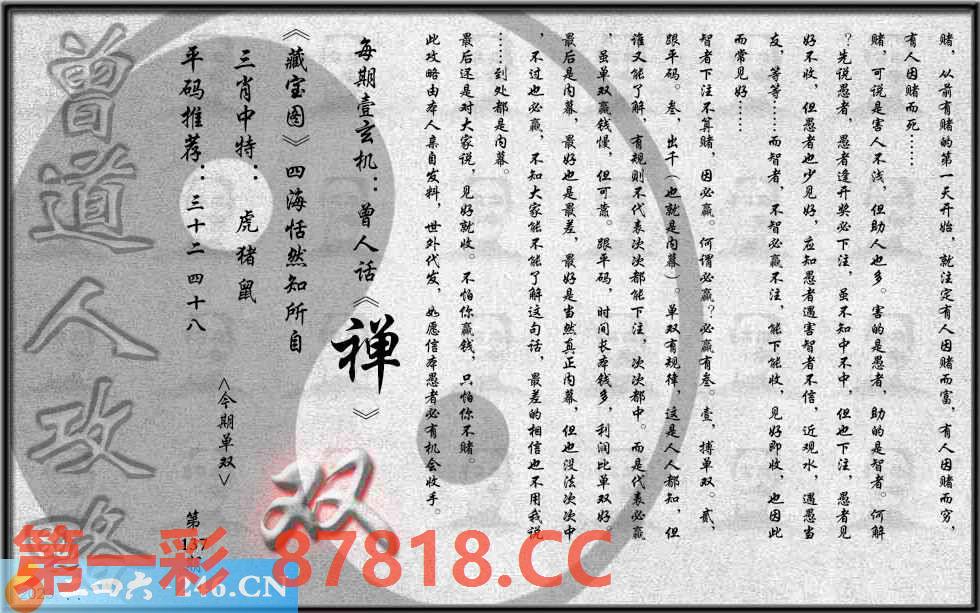 赌，从前有赌的第一天开始，就注定有人因赌而富，有人因赌而穷，
有人因赌而死……
赌，可说是害人不浅，但助人也多。害的是愚者，助的是智者。何解
？先说愚者，愚者逢开奖必下注，虽不知中不中，但也下注，愚者见
好不收，但愚者也少见好，应知愚者遇害智者不信，近观水，遇愚当
友，等等……而智者，不智必赢不注，能下能收，见好即收，也因此
而常见好……
智者下注不算赌，因必赢。何谓必赢？必赢有叁。壹，搏单双。贰，
跟平码。叁，出千（也就是内幕）。单双有规律，这是人人都知，但
谁又能了解，有规则不代表次次都能下注，次次都中。而是代表必赢
，虽单双赢钱慢，但可靠。跟平码，时间长本钱多，利润比单双好。
最后是内幕，最好也是最差，最好是当然真正内幕，但也没法次次中
，不过也必赢，不知大家能不能了解这句话，最差的相信也不用我说
……到处都是内幕。
最后还是对大家说，见好就收。不怕你赢钱，只怕你不赌。
此攻略由本人亲自发料，世外代发，如愿信本愚者必有机会收手。
每期壹玄机：曾人话《禅》
《藏宝图》四海恬然知所自
三肖中特：虎猪鼠
平码推荐：三十二 四十八
<今期单双>
双
第
137
期
曾道人攻略
第一彩 87818.CC
二四六 246.CN